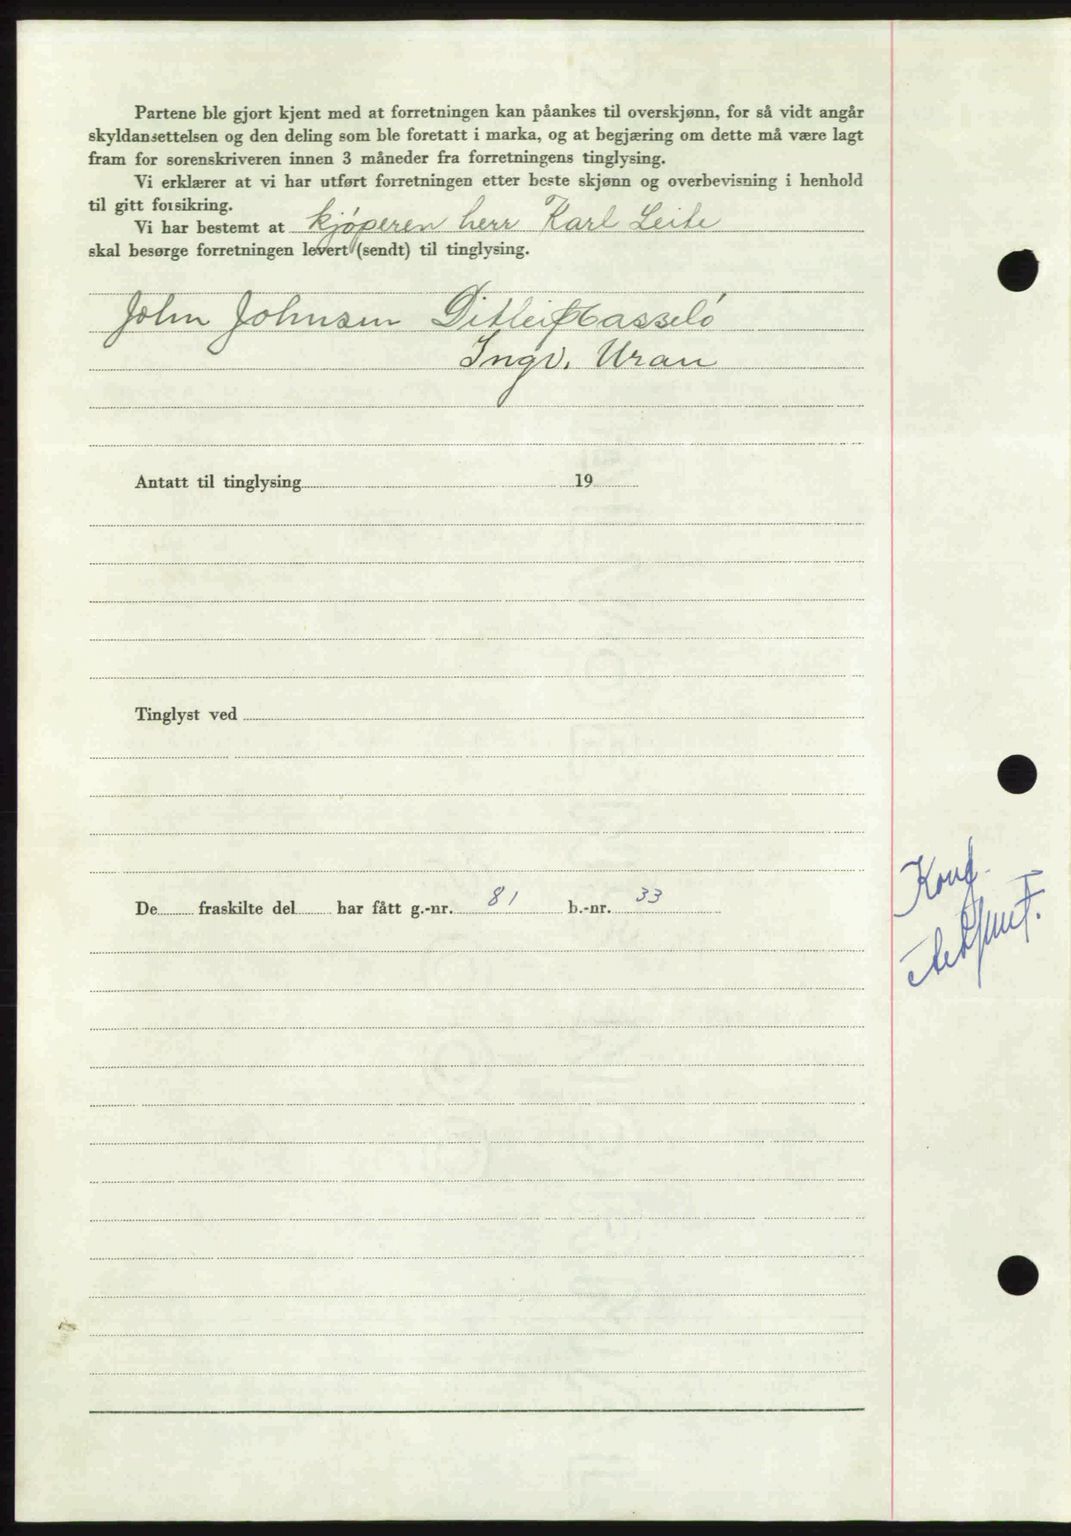 Partene ble gjort kjent med at forretningen kan påankes til overskjønn, for så vidt angår
skyldansettelsen og den deling som ble foretatt i marka, og at begjæring om dette må være lagt
fram for sorenskriveren innen 3 måneder fra forretningens tinglysing.
Vi erklærer at vi har utført forretningen etter beste skjønn og overbevisning i henhold
til gitt forsikring.
Vi har bestemt at kjøperen herr Karl Leite
skal besørge forretningen levert (sendt) til tinglysing.
John Johnsen Ditleif Hasselö
Ingv. Uran
Antatt til tinglysing 19
Tinglyst ved
De fraskilte del har fått g.-nr. 81 b.-nr. 33